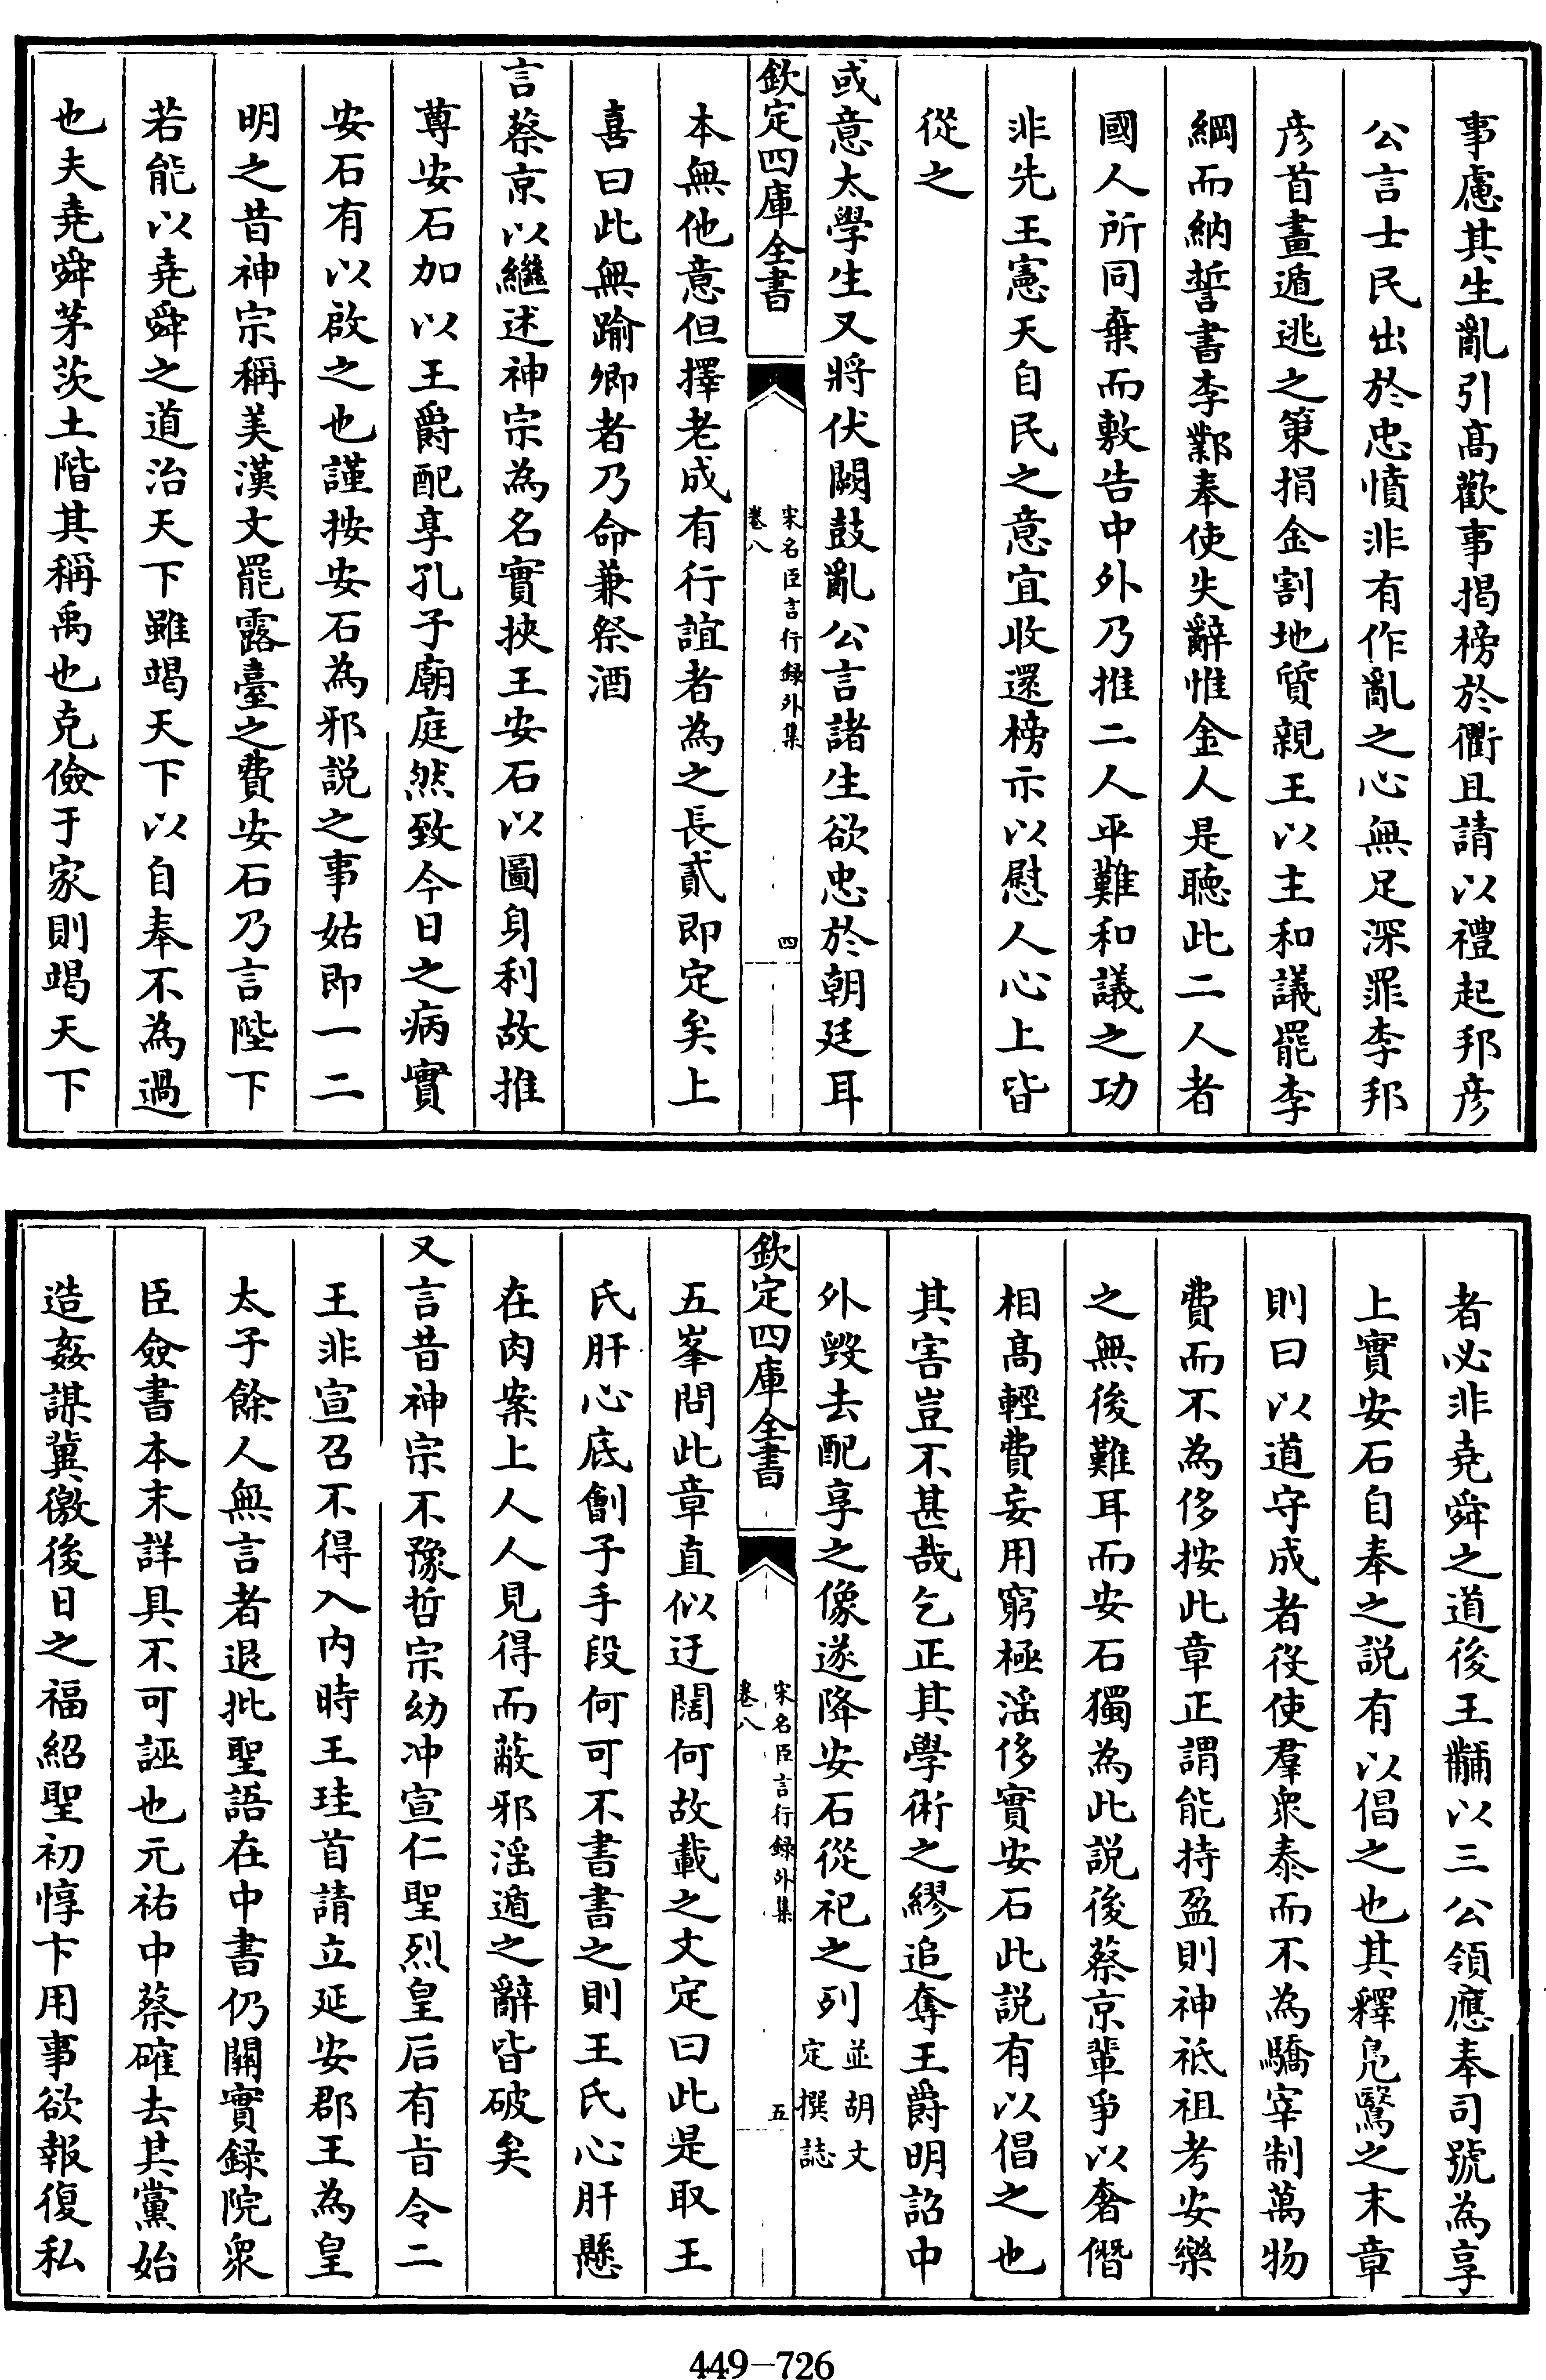 事慮其生亂引高歡事揭榜於衢且請以禮起邦彦
公言士民出於忠憤非有作亂之心無足深罪李邦
彦首畫遁逃之䇿捐金割地質親王以主和議罷李
綱而納誓書李鄴奉使失辭惟金人是聽此二人者
國人所同棄而敷告中外乃推二人平難和議之功
非先王憲天自民之意宜收還榜示以慰人心上皆
從之
或意太學生又將伏闕鼓亂公言諸生欲忠於朝廷耳
欽定四庫全書
宋名臣言行録外集
卷八
四
本無他意但擇老成有行誼者為之長貳即定矣上
喜曰此無踰卿者乃命兼祭酒
言蔡京以繼述神宗為名實挾王安石以圖身利故推
尊安石加以王爵配享孔子廟庭然致今日之病實
安石有以啟之也謹按安石為邪説之事姑即一二
明之昔神宗稱美漢文罷露臺之費安石乃言陛下
若能以堯舜之道治天下雖竭天下以自奉不為過
也夫堯舜茅茨土階其稱禹也克儉于家則竭天下
者必非堯舜之道後王黼以三公領應奉司號為享
上實安石自奉之説有以倡之也其釋鳬鷖之末章
則曰以道守成者役使羣衆泰而不為驕宰制萬物
費而不為侈按此章正謂能持盈則神祗祖考安樂
之無後難耳而安石獨為此説後蔡京輩爭以奢僭
相高輕費妄用窮極滛侈實安石此説有以倡之也
其害豈不甚哉乞正其學術之繆追奪王爵明詔中
外毁去配享之像遂降安石從祀之列並胡文
定撰誌
欽定四庫全書
宋名臣言行録外集
卷八
五
五峯問此章直似迂闊何故載之文定曰此是取王
氏肝心底劊子手段何可不書書之則王氏心肝懸
在肉案上人人見得而蔽邪滛遁之辭皆破矣
又言昔神宗不豫哲宗幼冲宣仁聖烈皇后有旨令二
王非宣召不得入内時王珪首請立延安郡王為皇
太子餘人無言者退批聖語在中書仍關實録院衆
臣僉書本末詳具不可誣也元祐中蔡確去其黨始
造姦謀冀徼後日之福紹聖初惇卞用事欲報復私
449-726